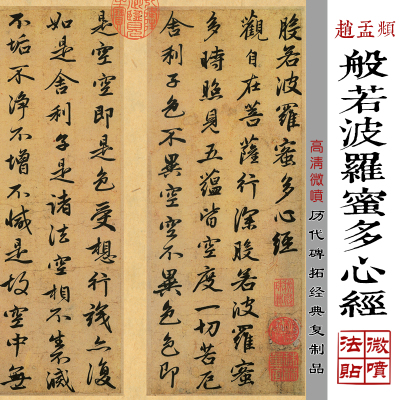 趙孟頫
般若波羅蜜多心經
高清微噴 历代碑拓经典复制品
微噴
法貼
般若波羅蜜多心經
觀自在菩薩行深般若波羅蜜
多時照見五蘊皆空度一切苦厄
舍利子色不異空空不異色色即
是空空即是色受想行識亦復
如是舍利子是諸法空相不生不滅
不垢不淨不增不減是故空中無